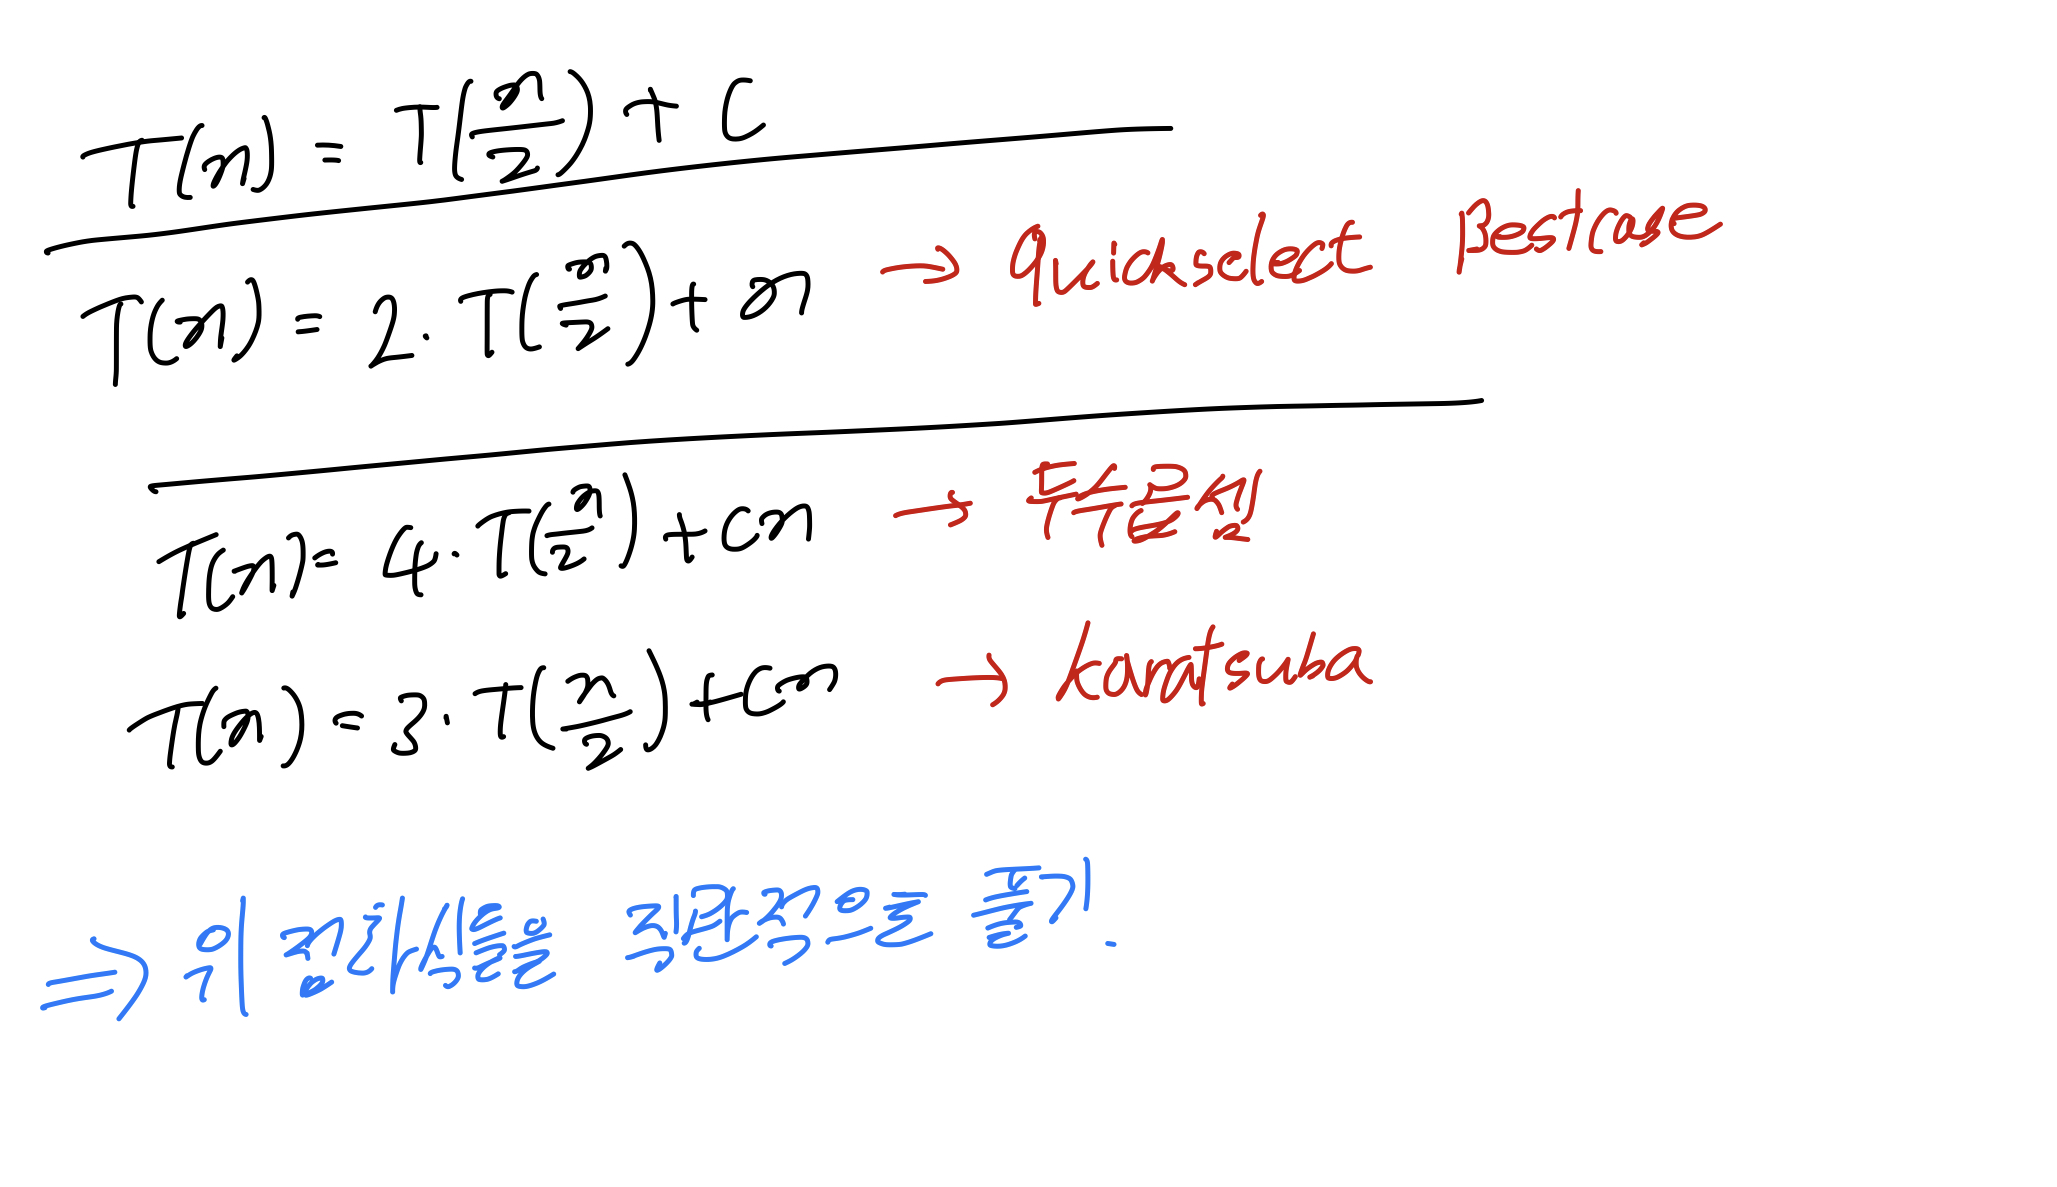 T(n) = T(n/2) + C
T(n) = 2 · T(n/2) + n → Quickselect Bestcase
T(n) = 4 · T(n/2) + cn → 두수곱셈
T(n) = 3 · T(n/2) + cn → karatsuba
⇒ 위 점화식들을 직관적으로 풀기.